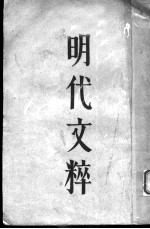 明代文粹